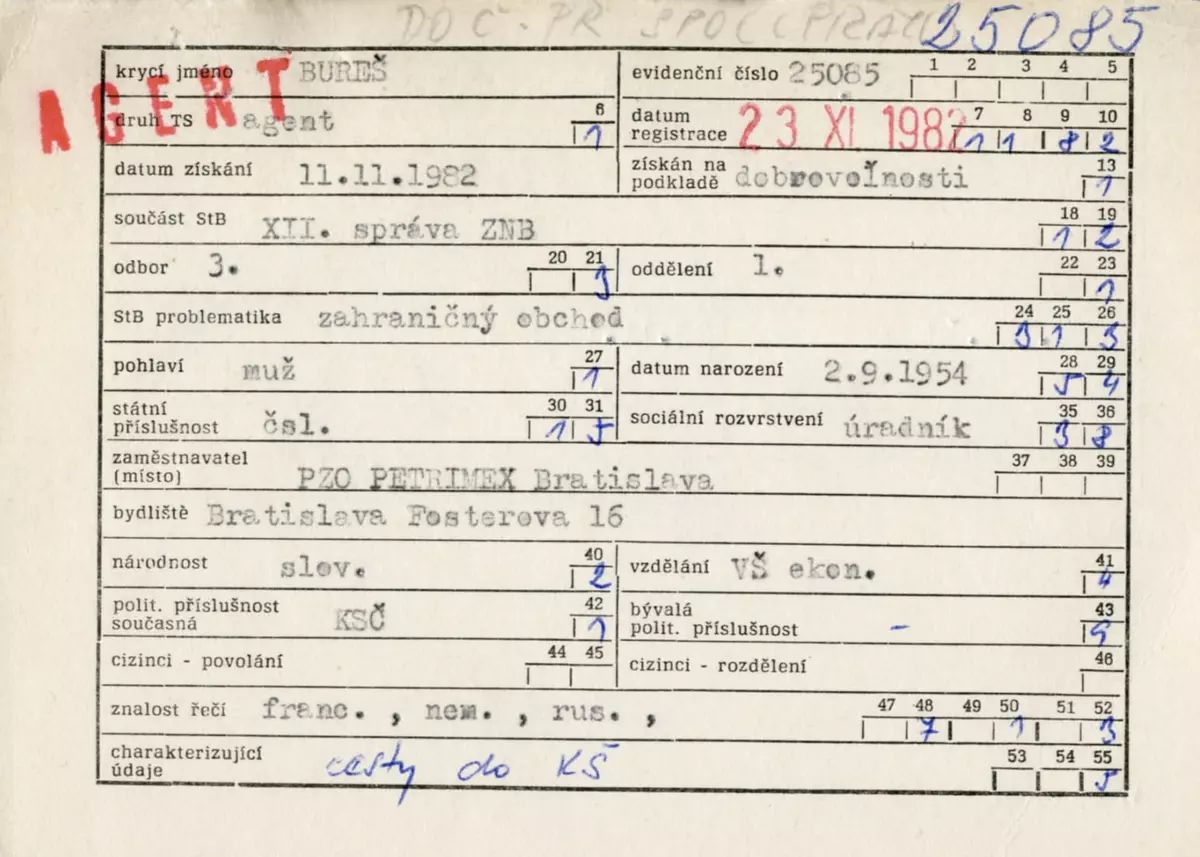 DO Č. PŘ SPOL 25085
krycí jméno BUREŠ evidenční číslo 25085 1 2 3 4 5
AGENT
druh TS agent 6 1 datum registrace 23 XI. 1982 7 8 9 10 1 1 8 2
datum získání 11.11.1982 získán na podkladě dobrovoľnosti 13 1
součást StB XII. správa ZNB 18 19 1 2
odbor 3. 20 21 3 oddělení 1. 22 23 1
StB problematika zahraničný obchod 24 25 26 3 1 3
pohlaví muž 27 1 datum narození 2.9.1954 28 29 5 4
státní příslušnost čsl. 30 31 1 5 sociální rozvrstvení úradník 35 36 3 8
zaměstnavatel (místo) PZO PETRIMEX Bratislava 37 38 39
bydliště Bratislava Fosterova 16
národnost slov. 40 2 vzdělání VŠ ekon. 41 4
polit. příslušnost současná KSČ 42 1 bývalá polit. příslušnost - 43 9
cizinci - povolání 44 45 cizinci - rozdělení 46
znalost řečí franc. , nem. , rus. , 47 48 49 50 51 52 7 1 3
charakterizující údaje cesty do KŠ 53 54 55 5